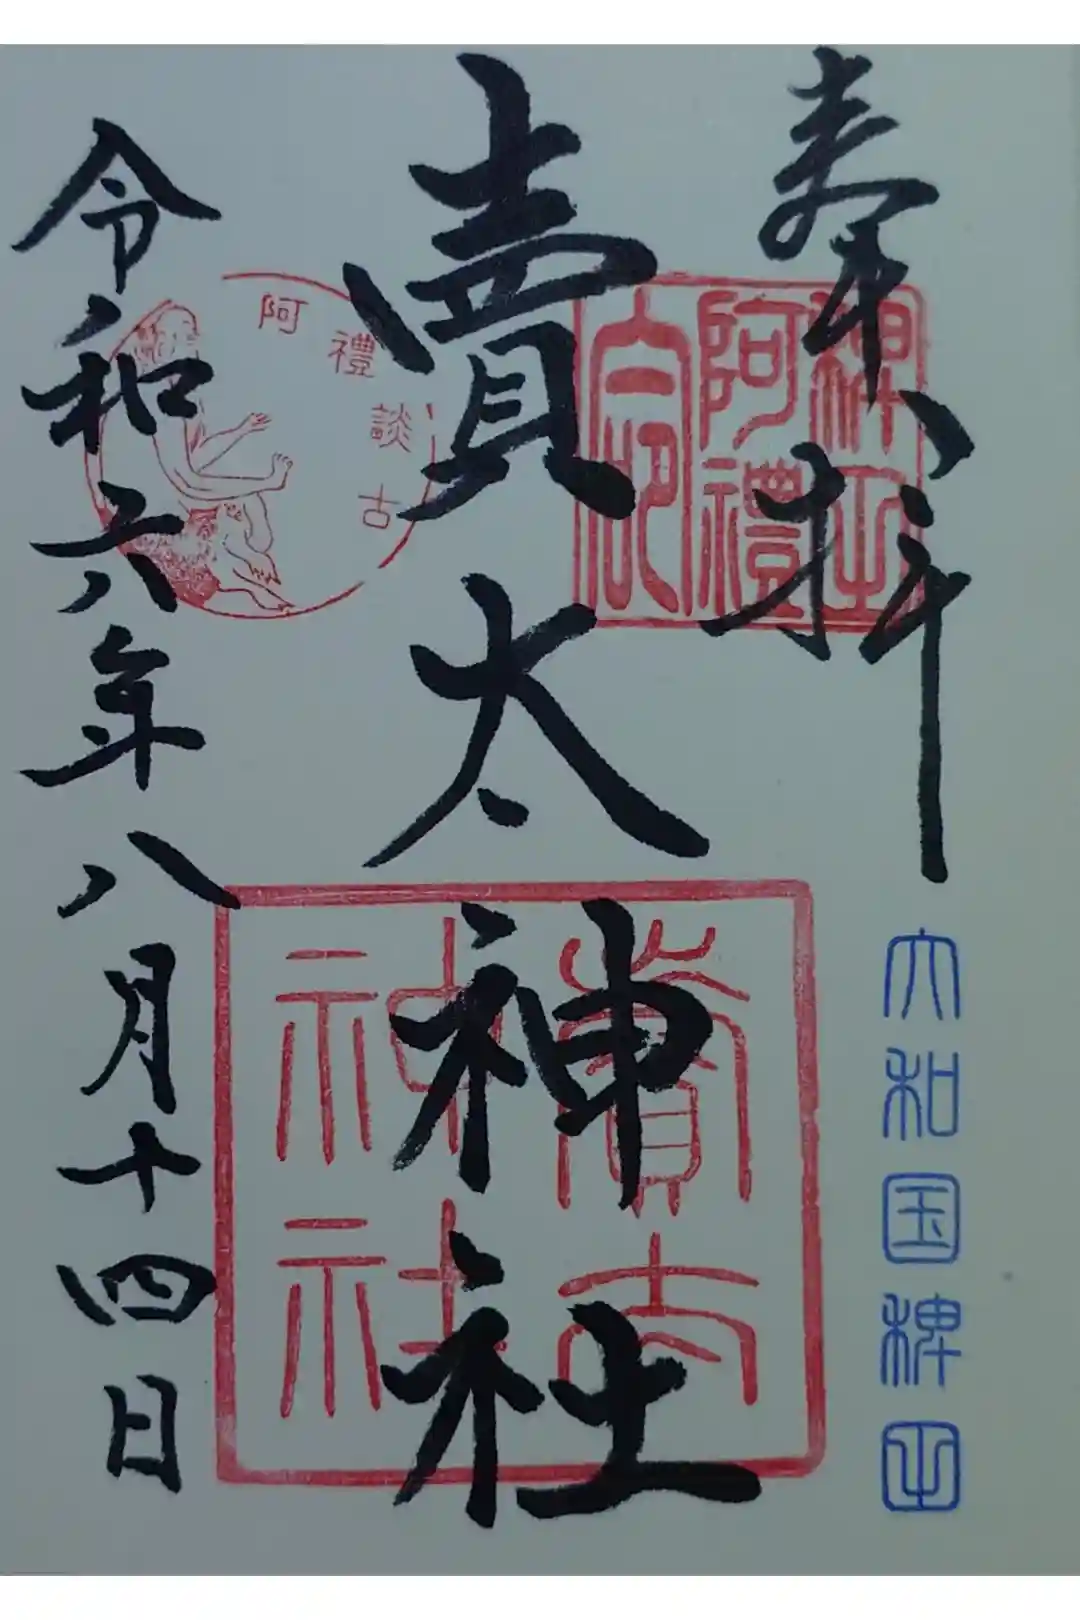 奉拝
大和国稗田
稗田
阿禮
賣太神社
賣太
神社
阿禮談古
令和六年八月十四日